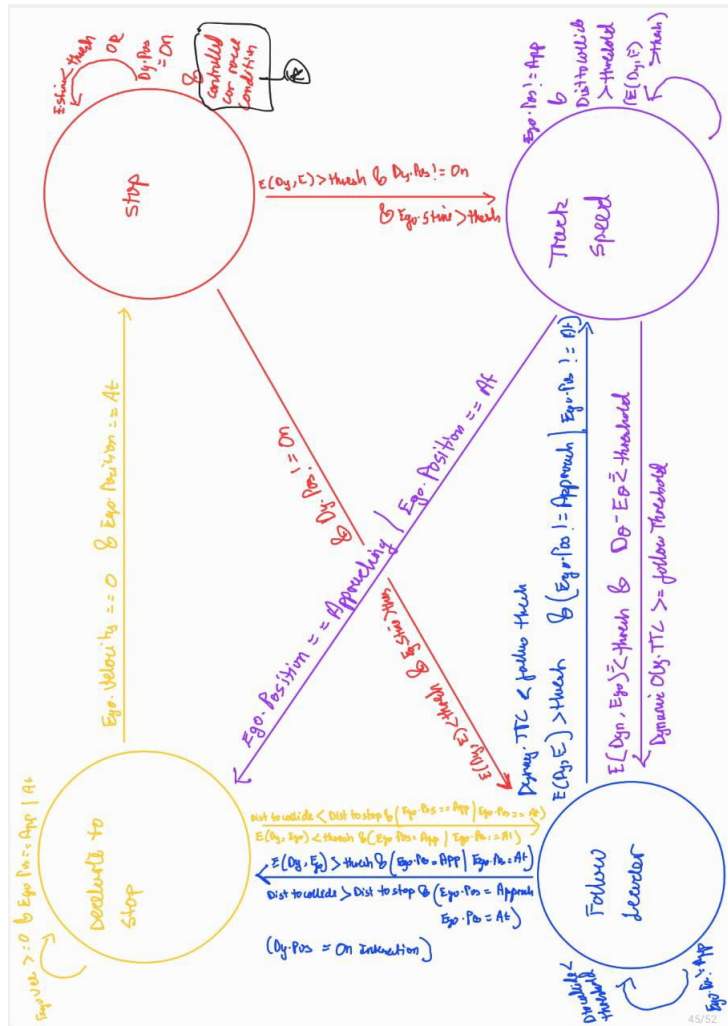 E.stime < thresh
OR
Dy.Pos
= On
&
controlled
car
condition
A
stop
E(Dy,E) > thresh & Dy.Pos != On
& Ego.stime > thresh
Ego.Pos != App
&
Dist to collide
> threshold
(E(Dy,E)
> thresh)
Track
speed
Ego.Velocity == 0 & Ego.Position == At
E(Dy,E) < thresh & E.stime > thresh
& Dy.Pos != On
Ego.Position == Approaching | Ego.Position == At
TTC < follow thresh
E(Dy,E) > thresh & (Ego.Pos != Approach | Ego.Pos != At)
E(Dyn, Ego) <= thresh & Dθ-Eθ <= threshold
Dynamic Obj.TTC >= follow Threshold
Decelerate to
stop
Ego.Vel >= 0 & Ego.Pos == App | At
Dist to collide < Dist to stop & (Ego.Pos == App | Ego.Pos == At)
E(Dy, Ego) < thresh & (Ego.Pos = App | Ego.Pos == At)
E(Dy, Ego) > thresh & (Ego.Pos = App | Ego.Pos = At)
Dist to collide > Dist to stop & (Ego.Pos = Approach
Ego.Pos = At)
(Dy.Pos = On Intersection)
Follow
Leader
D to collide <
threshold
Ego.Pos != App
45/52